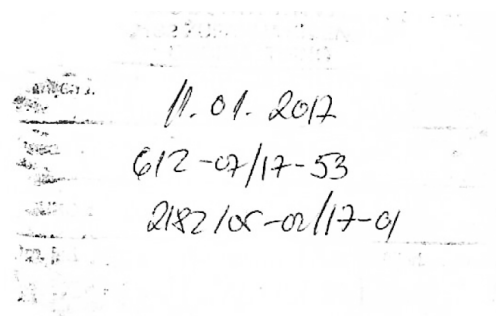 11. 01. 2017
612-07/17-53
2182/05-02/17-01